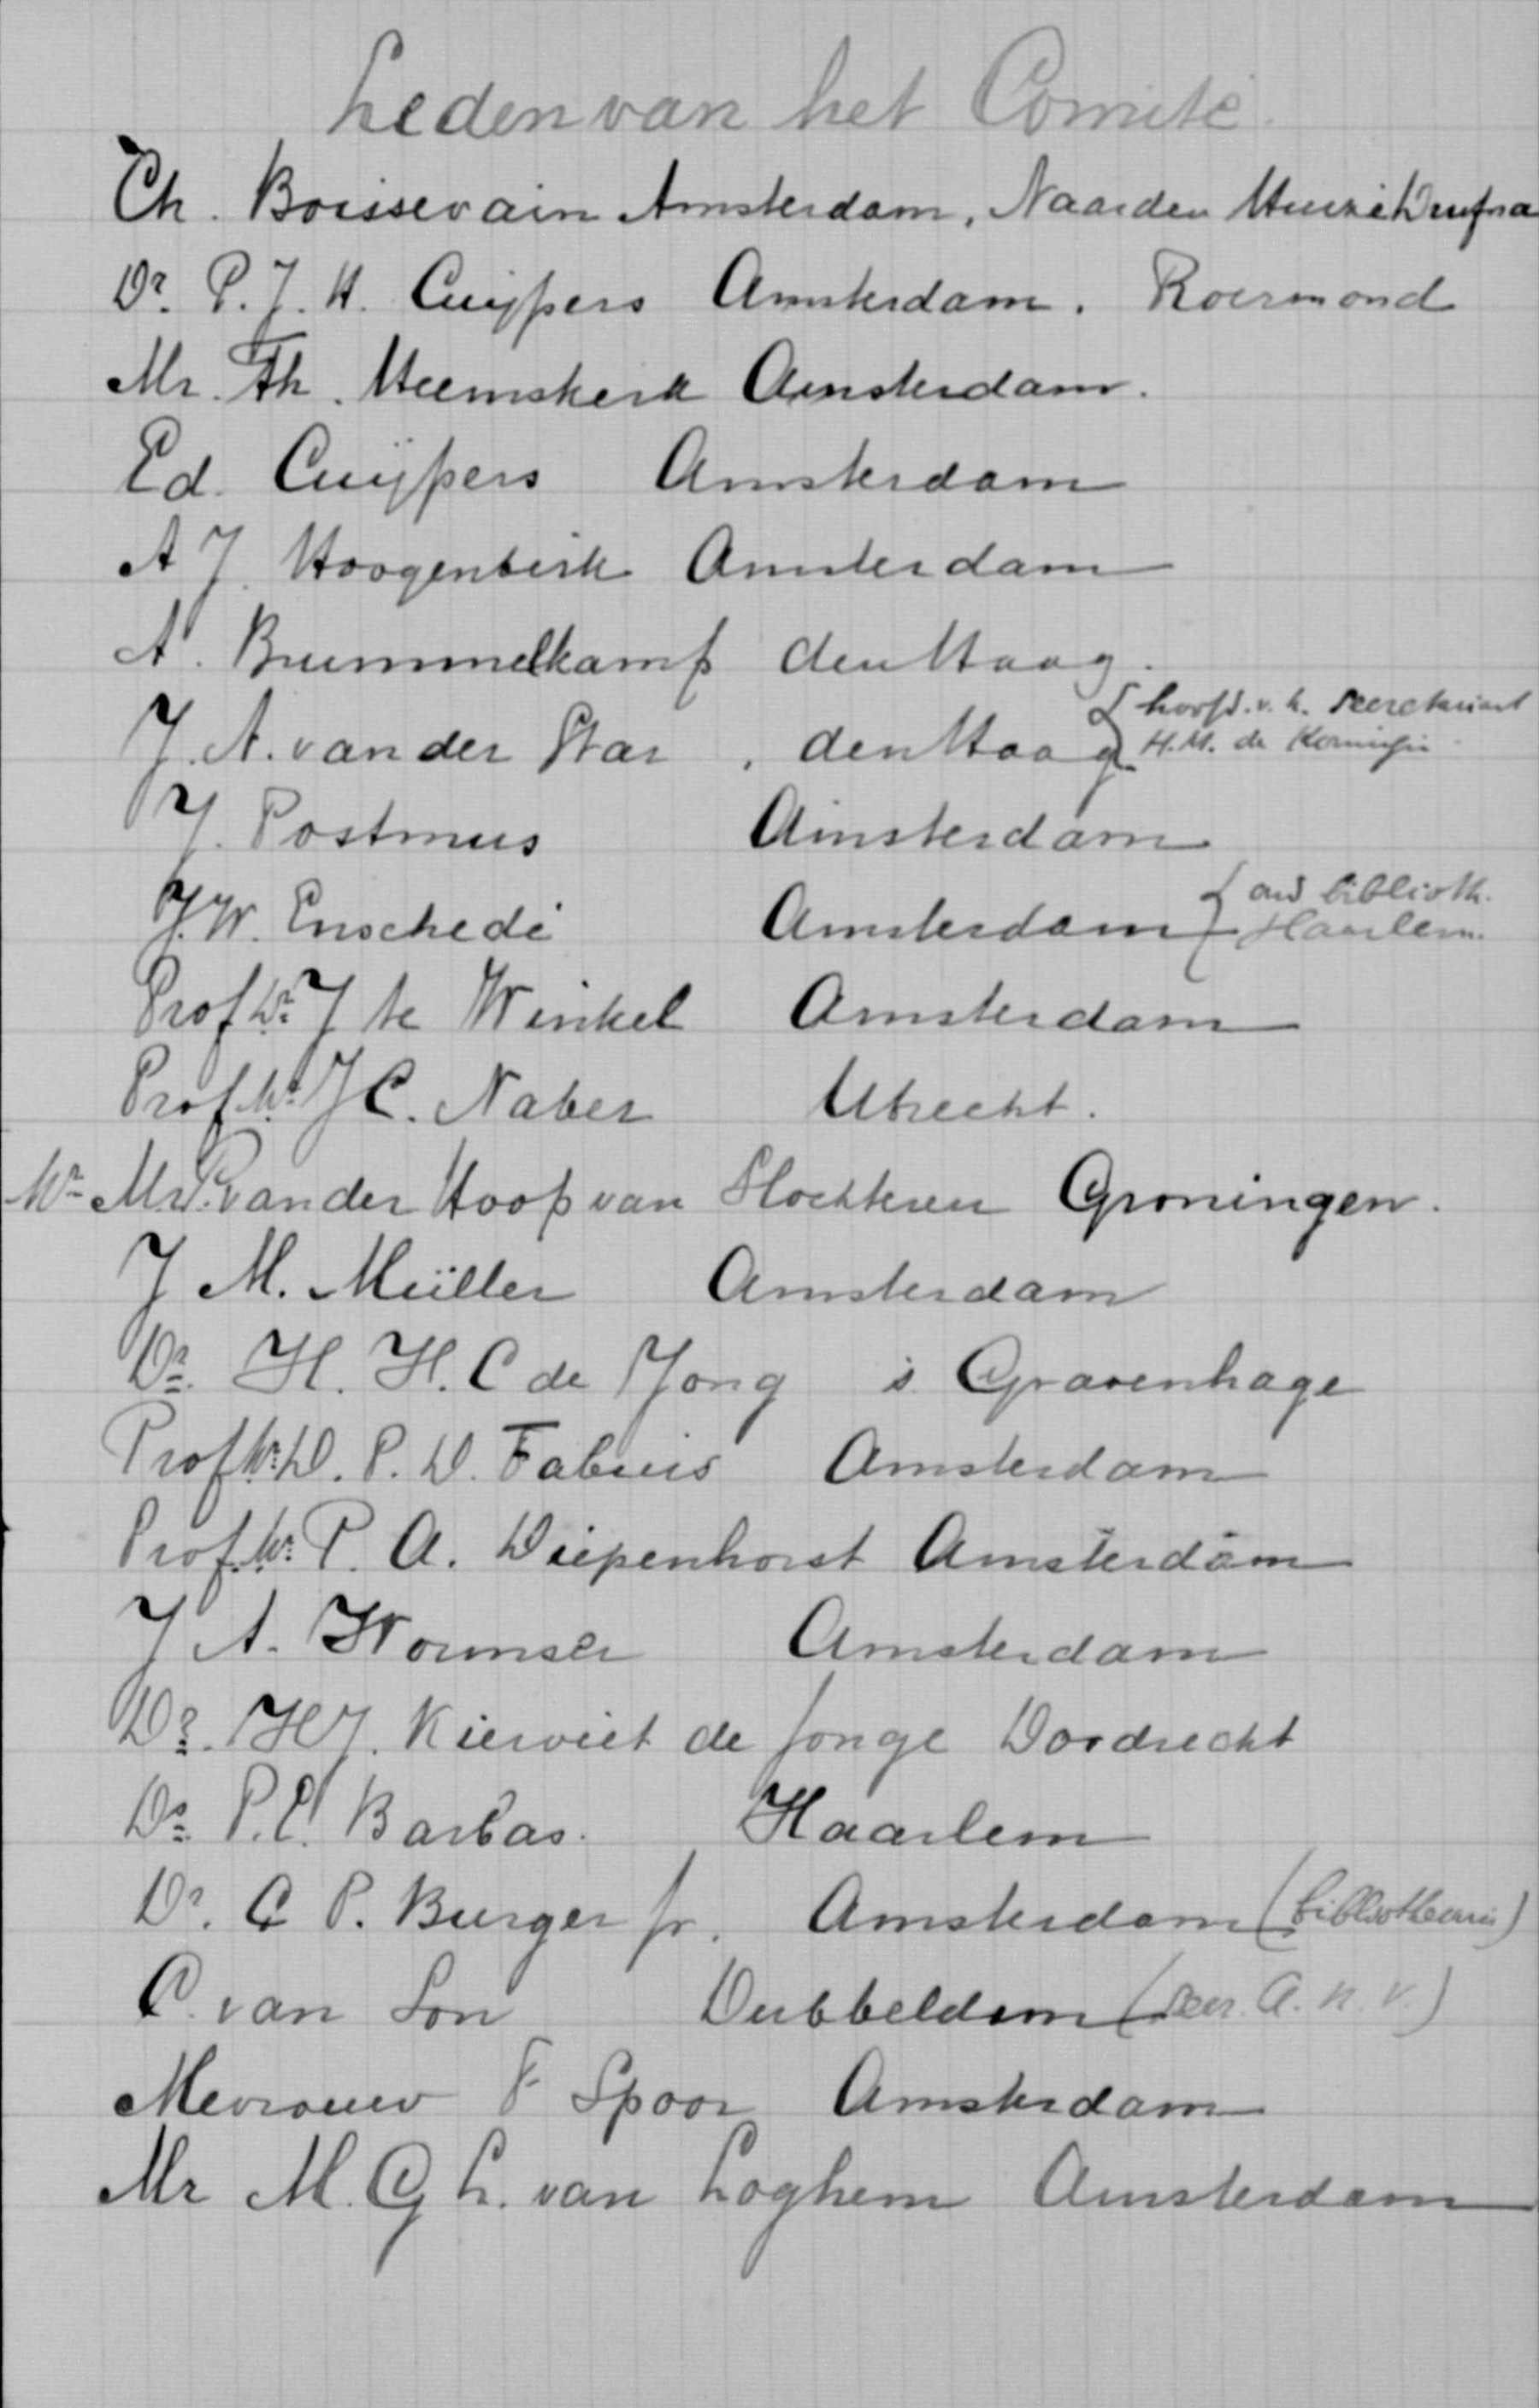 Leden van het Comité.
Ch. Boissevain Amsterdam, Naarden Huize Drafna
Dr. P. J. H. Cuijpers Amsterdam. Roermond
Mr. Th. Heemskerk Amsterdam.
Ed. Cuijpers Amsterdam
A J. Hoogenbirk Amsterdam
A. Brummelkamp den Haag.
J. A. van der Star, den Haag { hoofd. v. h. secretariaat
H.M. de Koningin
J. Postmus Amsterdam
J. W. Enschedé Amsterdam { oud biblioth.
Haarlem.
Prof Dr. J te Winkel Amsterdam
Prof. Mr. J C. Naber Utrecht.
Mr. van der Hoop van Slochteren Groningen.
J M. Müller Amsterdam
Dr. H. H. C de Jong s Gravenhage
Prof Mr. D. P. D. Fabius Amsterdam
Prof. Mr. P. A. Diepenhorst Amsterdam
J A. Wormser Amsterdam
Dr. H J. Kiewiet de Jonge Dordrecht
Ds. P. C. Barbas. Haarlem
Dr. C P. Burger jr. Amsterdam (bibliothecaris)
C. van Son Dubbeldam (secr. A. N. V.)
Mevrouw F Spoor Amsterdam
Mr M. G L. van Loghem Amsterdam